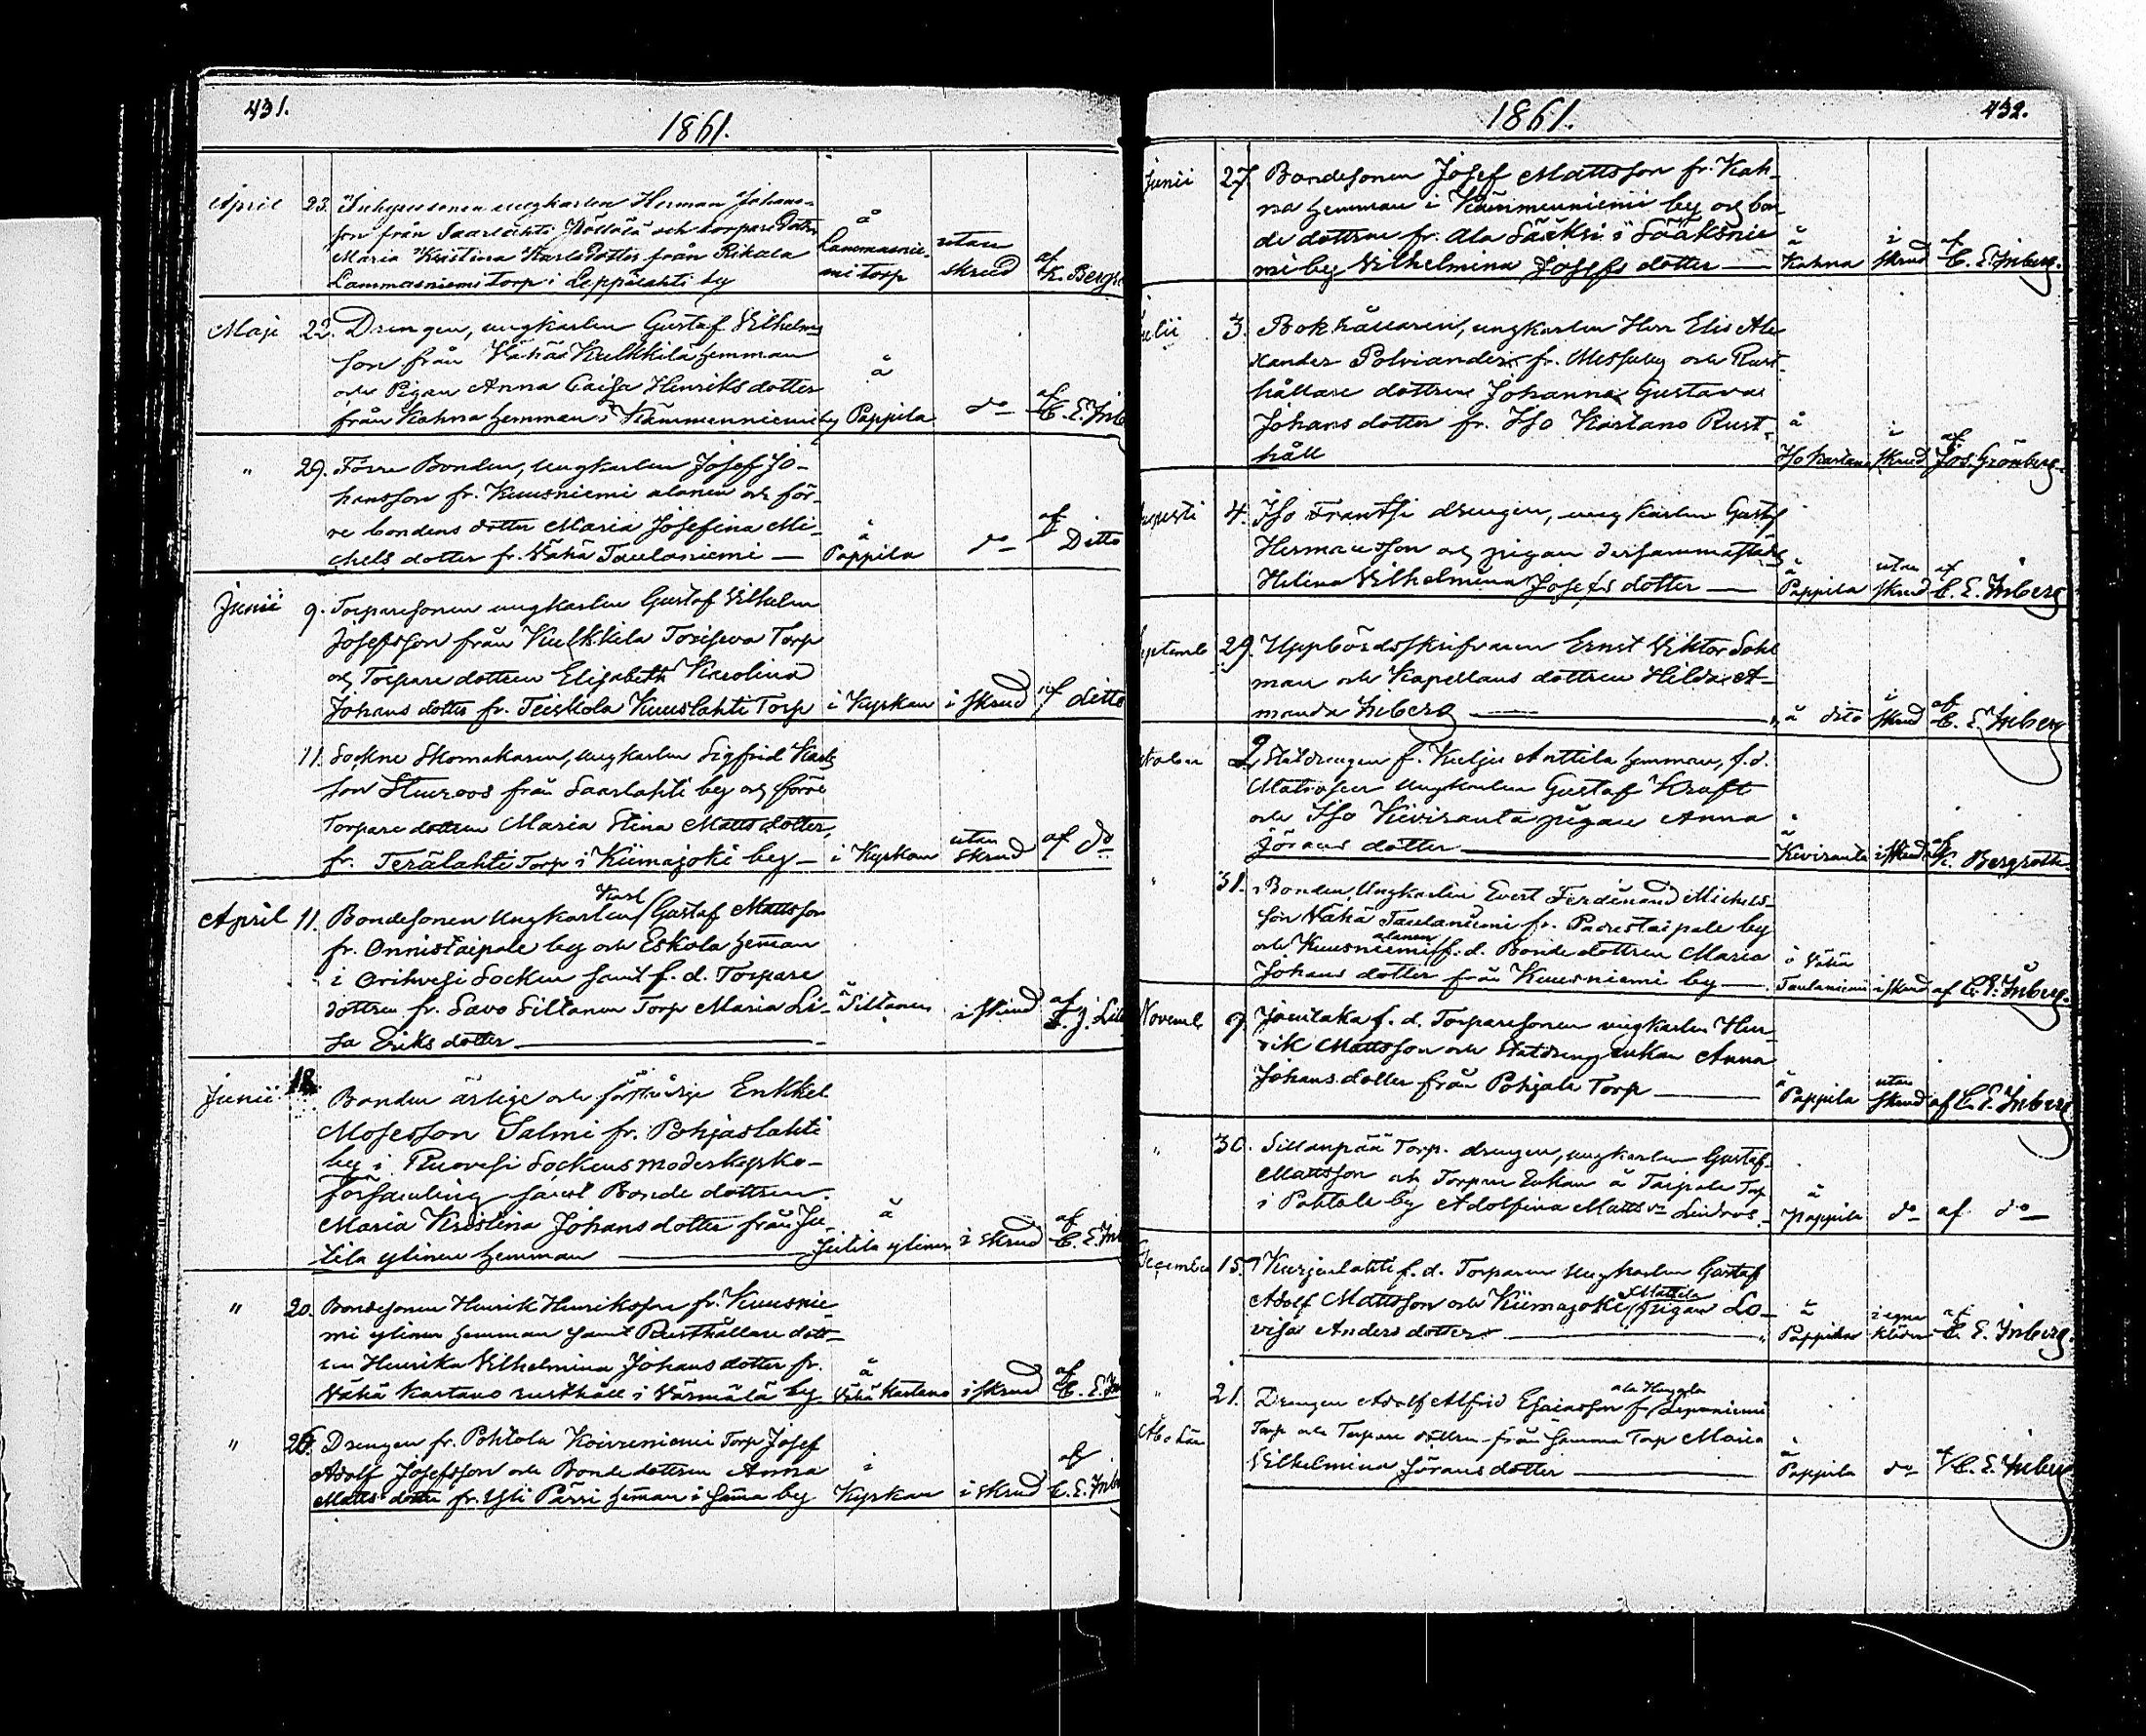 431.
1861.
April 23. Inhysesonen ungkarlen Herman Johans-
son från Saarlahti Pöllölä och torpare Dotter
Maria Kristina Karlsdotter från Rikala
Lammasniemi torp i Leppälahti by
å Lammasnie-
mi torp
utan
skrud
af
K. Bergr
Maji 22. Drengen, ungkarlen Gustaf Vilhelms
son från Vähä Kulkkila hemman
och Pigan Anna Caisa Henriksdotter
från Kahna hemman i Kämmenniemi by
å
Pappila
do
af
C. E. Inb
" 29. Förre Bonden, ungkarlen Josef Jo-
hansson fr. Kuusniemi alanen och för-
re bondens dotter Maria Josefina Mi-
chels dotter fr. Vähä Taulaniemi —
å
Pappila
do
af
Ditto
Junii 9. Torparesonen ungkarlen Gustaf Vilhelm
Josefsson från Kulkkila Torp
och Torpare dottren Elisabeth Karolina
Johans dotter fr. Teiskola Kuuslahti Torp
i Kyrkan i skrud af ditto
11. Sockne Skomakaren, ungkarlen Sigfrid Karls
son Stenroos från Saarlahti by och förre
Torpare dottren Maria Stina Matts dotter,
fr. Terälahti Torp i Kiimajoki by —
i Kyrkan
utan
skrud
af do
April 11. Bondesonen Ungkarlen Karl Gustaf Mattsson
fr. Onnistaipale by och Eskola heman
i Orihvesi Socken samt f. d. Torpare
dottren fr. Savo Siltanen Torp Maria Li-
sa Eriks dotter —
å Siltanen
i skrud
af
Junii 18. Bonden ärlige och Enkkel
Mosesson Salmi fr. Pohjaslahti
by i Ruovesi Sockens moderkyrko-
församling samt Bonde dottren
Maria Kristina Johans dotter från Ju-
tila ylinen hemman —
å
Jutila ylinen
i skrud
af
C. E. Inb
" 20. Bondesonen Henrik Henriksson fr. Kuusnie-
mi ylinen hemman samt Rusthållare dott-
ren Henrika Vilhelmina Johans dotter fr.
Vähä Kartano rusthåll i Värmälä by
å
Vähä Kartano
i skrud
af
C. E. In
" 26. Drengen fr. Pohtola Koivuniemi Torp Josef
Adolf Josefsson och Bonde dottren Anna
Matts dotter fr. Yli Pärri heman i sama by
i
Kyrkan
i skrud
af
C. E. Inb
432.
1861.
Junii 27. Bondesonen Josef Mattsson fr. Kah-
na hemman i Kämmenniemi by och bon-
de dottren fr. Ala Sääksi i Sääksnie
mi by Vilhelmina Josefs dotter —
å
Kahna
i
skrud
af
C. E. Inberg.
ulii 3. Bokhållaren, ungkarlen Herr Elis Ale
xander Polviander fr. Messuby och Rust-
hållare dottren Johanna Gustava
Johans dotter fr. Iso Kartano Rust-
håll
å
Iso kartano
i
skrud
af
Jos. Grönberg.
ugusti 4. Iso Frantsi drengen, ungkarlen Gustaf
Hermansson och pigan dersammastädes
Helina Vilhelmina Josefs dotter —
å
Pappila
utan
skrud
af
C. E. Inberg
eptemb 29. Uppbördsskrifvaren Ernst Viktor Sohl
man och Kapellans dottren Hilda A-
manda Inberg —
å dito
i
skrud
af
C. E. Inberg
ktober 2. Statdrengen f. Kulju Anttila hemman, f. d.
Matrosen Ungkarlen Gustaf Kraft
och Iso Kiviranta pigan Anna
Görans dotter —
å
Kiviranta
i skrud
af
K. Bergroth.
" 31. Bonden, Ungkarlen Evert Ferdinand Michels-
son Vähä Taulaniemi fr. Padustaipale by
och Kuusniemi alanen f. d. Bonde dottren Maria
Johans dotter från Kuusniemi by —
å Vähä
Taulaniemi
i skrud
af C. E. Inberg.
Novemb. 9. f. d. Torparesonen ungkarlen Hen-
rik Mattsson och Statdreng enkan Anna
Johans dotter från Pohjala Torp —
å
Pappila
utan
skrud
af C. E. Inberg
" 30. Sillanpää Torp. drengen, ungkarlen Gustaf
Mattsson och Torpare Enkan å Taipale Torp
i Pohtola by Adolfina Matts dr Lindroos.
å
Pappila
do
af do
December 15. Kurjenlahti f. d. Torparen Ungkarlen Gustaf
Adolf Mattsson och Kiimajoki Mattila pigan Lo-
visa Anders dotter —
å
Pappila
i egna
kläder
af
C. E. Inberg.
" 21. Drengen Adolf Alfrid Esaiasson fr ala
Torp och Torpare dottren från samma Torp Maria
Vilhelmina Görans dotter —
Åbo Län
å
Pappila
do
af
C. E. Inberg